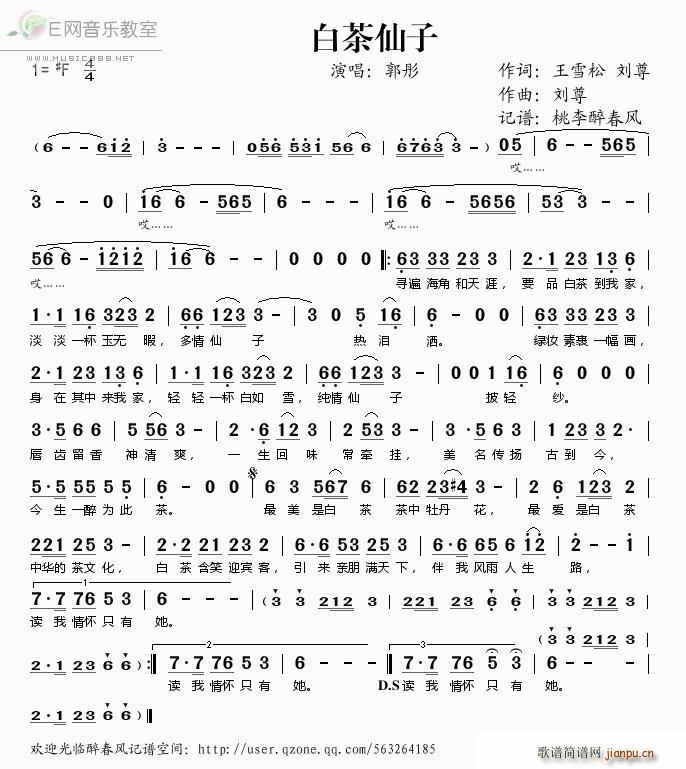 E网音乐教室
WWW.MUSIC888.NET
白茶仙子
1=♯F 4/4
演唱：郭彤
作词：王雪松 刘尊
作曲：刘尊
记谱：桃李醉春风
(6 - - 6i2 | i3 - - - | 056 531 56 6 | 6763 3 -) 05 | 6 - - 565 |
哎……
3 - - 0 | i6 6 - 565 | 6 - - - | i6 6 - 5656 | 53 3 - - |
哎…… 哎……
56 6 - i2i2 | i6 6 - - | 0 0 0 0 ‖: 63 33 23 3 | 2·1 23 13 6 |
哎…… 寻遍 海角 和天 涯， 要 品 白茶 到我 家，
1·1 16 323 2 | 66 123 3 - | - 3 0 5 16 | 6 - - - | 63 33 23 3 |
淡 淡 一杯 玉无 暇， 多情 仙 子 热 泪 洒。 绿妆 素裹 一幅 画，
2·1 23 13 6 | 1·1 16 323 2 | 66 123 3 - | 0 0 1 16 | 6 - - - |
身 在 其中 来我 家， 轻 轻 一杯 白如 雪， 纯情 仙 子 披 轻 纱。
3·5 6 6 | 5 56 3 - | 2·6 12 3 | 2 53 3 - | 3·5 6 3 | 2 33 5 - |
唇 齿 留 香 神 清 爽， 一 生 回 味 常 牵 挂， 美 名 传 扬 古 到 今，
5·5 55 5 5 | 6 - 0 0 | 6 3 567 6 | 62 23♯4 3 - | 2 6 123 2 |
今 生 一醉 为 此 茶。 最 美 是白 茶 茶中 牡丹 花， 最 爱 是白 茶
221 25 3 - | 2·2 21 23 3 | 6·6 53 53 5 | 6·6 65 6 i2 | 2 - - i |
中华的 茶文 化， 白 茶 含笑 迎宾 客， 引 来 亲朋 满天 下， 伴 我 风雨 人 生 路，
1
7·7 76 5 3 | 6 - - - | (3 3 212 3 | 221 23 6 6 | 3 3 212 3 |
读 我 情怀 只 有 她。
2·1 23 6 6) :‖ 7·7 76 5 3 | 6 - - - | 7·7 76 5 3 | 6 - - - | (3 3 212 3 |
2 3
读 我 情怀 只 有 她。 D.S 读 我 情怀 只 有 她。
2·1 23 6 6) ‖
欢迎光临醉春风记谱空间：http://user.qzone.qq.com/563264185
歌谱简谱网
jianpu.cn